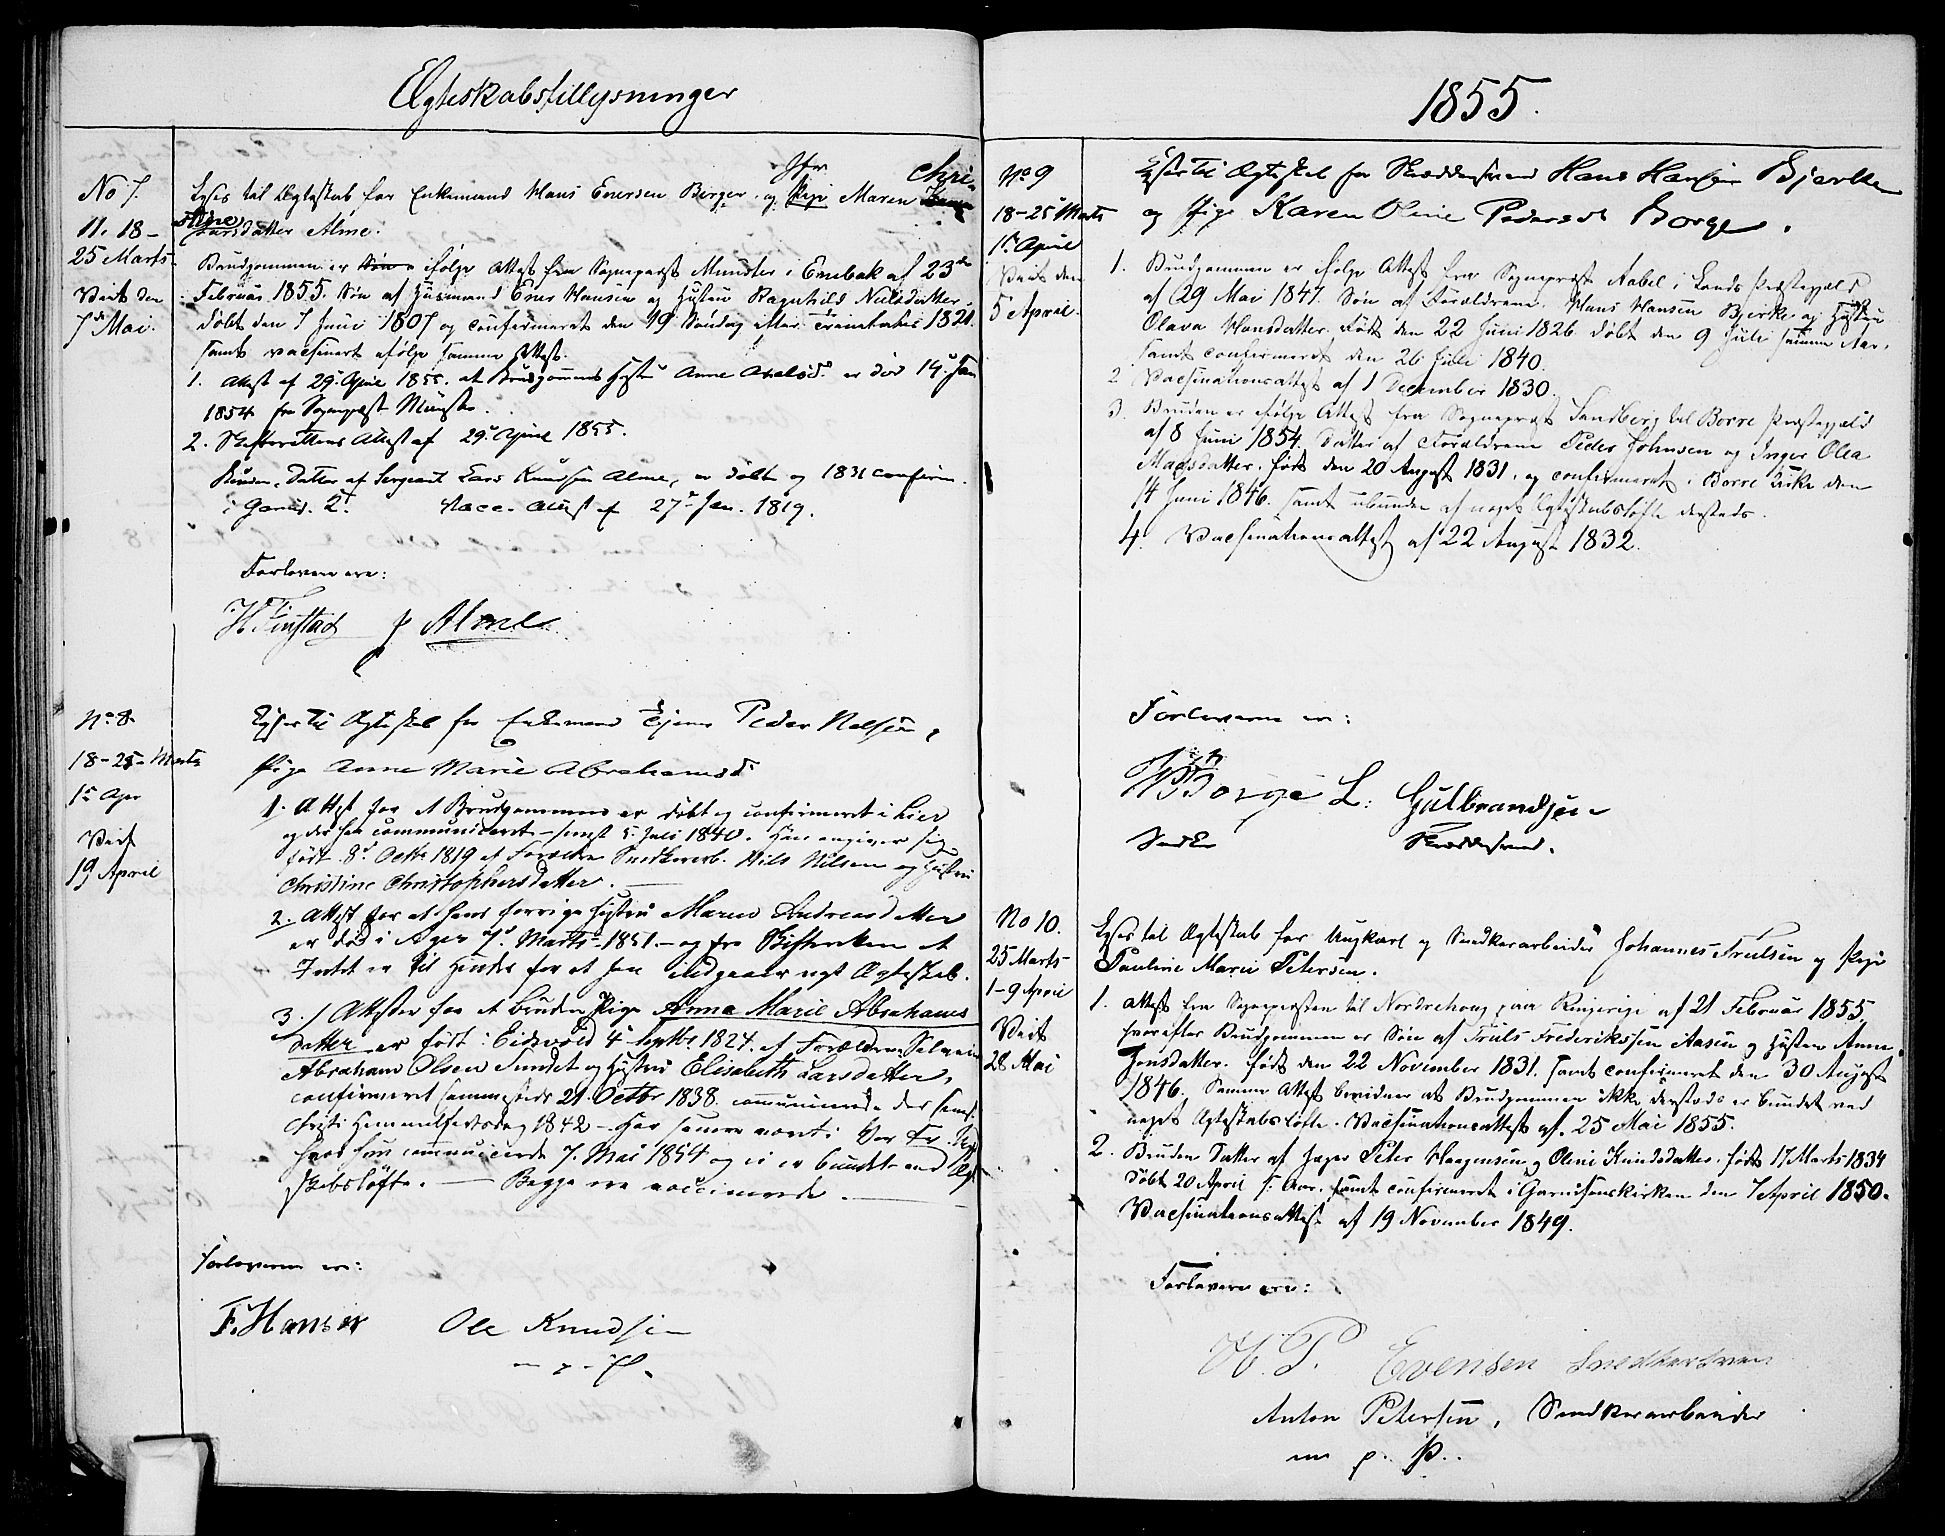 Ægteskabstillysninger
No 7.
11. 18-
25 Marts.
Viet den
7de Mai.
Jfr Chri-
Lyses til Ægteskab for Enkemand Hans Enersen Berger og Pige Maren
stine
Larsdatter Alme.
Brudgommen er ifølge Attest fra Sognepræst Munster i Enebak af 23de
Februar 1855. Søn af Huusmand Ener Hansen og Hustru Ragnhild Nielsdatter.
døbt den 7 Juni 1807 og confirmeret den 19 Søndag efter Trinitatis 1821
samt vaccineret ifølge samme Attest.
1. Attest af 29 April 1855 at Brudgommens Hustru Anne Axelsd. er død 14 Jan
1854 fra Sognepræst Münster.
2. Skifterettens Attest af 29 April 1855.
Bruden, Datter af Sergeant Lars Knudsen Alme, er døbt og 1831 confirm.
i Garnis. K. Vacc. Attest af 27de Jan. 1819.
Forlovere ere:
H. Finstad J Alme
No 8
18-25-Marts
1ste Apr
Viet
19 April
Lyses til Ægteskab for Enkemand Peder Nielsen,
Pige Anne Marie Abrahamsd
1. Attest for at Brudgommen er døbt og confirmeret i Lier
og der har communiceret senest 5 Juli 1840. Han angiver sig
født 8de Octbr 1819 af Forældre Snedkerarb. Nils Nilsen og Hustru
Christine Christophersdatter.
2. Attest for at hans forrige Hustru Maren Andreasdatter
er død i Ager 7de Marts 1851. og fra Skifteretten at
Intet er til Hinder for at han indgaaer nyt Ægteskab.
3. Attester for at Bruden Pige Anna Marie Abrahams
datter er født i Eidsvold 4 Septbr 1824 af Forældre Selveier
Abraham Olsen Sundet og Hustru Elisabeth Larsdatter,
confirmeret sammesteds 21 Octbr 1838 communicerede der senest
Christi Himmelfartsdag 1842 - Har senere været i Vor Fr.
hvor hun communicerede 7. Mai 1854 og ei er bundet ved Æg-
teskabsløfte. - Begge ere vaccinerede.
Forlovere ere:
F. Hansen Ole Knudsen
m. p. P.
1855.
No 9
18-25 Marts
1ste April
Viet den
5 April.
Lyses til Ægteskab for Skræddersvend Hans Hansen Bjerke
og Pige Karen Oline Pedersd Borge.
1. Brudgommen er ifølge Attest fra Sognepræst Aabel i Lands Præstegjeld
af 29 Mai 1847. Søn af Forældrene Hans Hansen Bjerke og Hustru
Olava Hansdatter. født den 22 Juni 1826 døbt den 9 Juli samme Aar,
samt confirmeret den 26 Juli 1840.
2. Vaccinationsattest af 1 December 1830.
3. Bruden er ifølge Attest fra Sognepræst Sandberg til Borre Præstegjeld
af 8 Juni 1854. Datter af Forældrene Peder Johnsen og Inger Olea
Madsdatter, født den 20 August 1831. og confirmeret i Borre Kirke den
14 Juni 1846. samt ubunden af noget Ægteskabsløfte dersteds.
4. Vaccinationsattest af 22 August 1832.
Forloverne ere:
Borge L: Gulbrandsen
Snedker Skræddersvend.
No 10.
25 Marts
1-9 April
Viet
28 Mai
Lyses til Ægteskab for Ungkarl og Snedkerarbeider Johannes Trulsen og Pige
Pauline Marie Petersen.
1. Attest fra Sognepræsten til Norderhoug paa Ringerige af 21 Februar 1855
hvorefter Brudgommen er Søn af Truls Frederikssen Aasen og Hustru Anne
Jensdatter. født den 22 November 1831. samt confirmeret den 30 August
1846. Samme Attest bevidner at Brudgommen ikke dersteds er bundet ved
noget Ægteskabsløfte. Vaccinationsattest af 25 Mai 1855.
2. Bruden Datter af Jæger Peter Haagensen og Oline Knudsdatter. født 17 Marts 1834
døbt 20 April s. Aar. samt confirmeret i Garnisonskirken den 7 April 1850.
Vaccinationsattest af 19 November 1849.
Forlovere ere:
H. P. Evensen Snedkersvend
Anton Petersen, Snedkerarbeider
m. p. P.